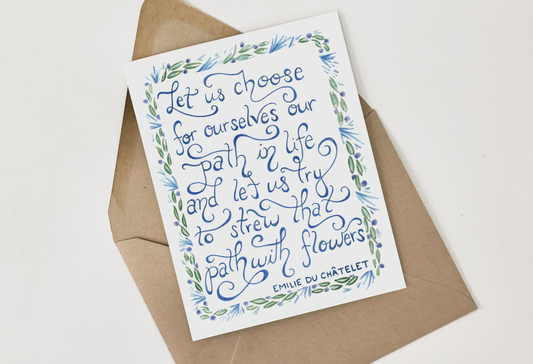 Let us choose
for ourselves our
path in life
and let us try
to strew that
path with flowers
EMILIE DU CHÂTELET